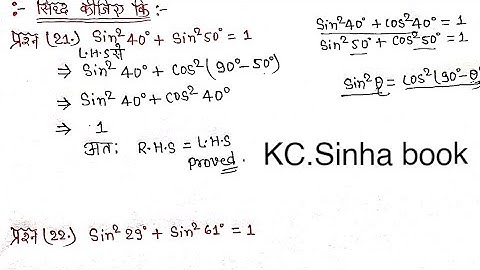 :- सिद्ध कीजिए कि :-
प्रश्न (21.) Sin²40° + Sin²50° = 1
L.H.S से
⇒ Sin²40° + Cos²(90°-50°)
⇒ Sin²40° + Cos²40°
⇒ 1
अतः R.H.S = L.H.S
proved.
Sin²40° + Cos²40° = 1
Sin²50° + Cos²50° = 1
Sin²θ = Cos²(90°-θ°
KC.Sinha book
प्रश्न (22.) Sin²29° + Sin²61° = 1